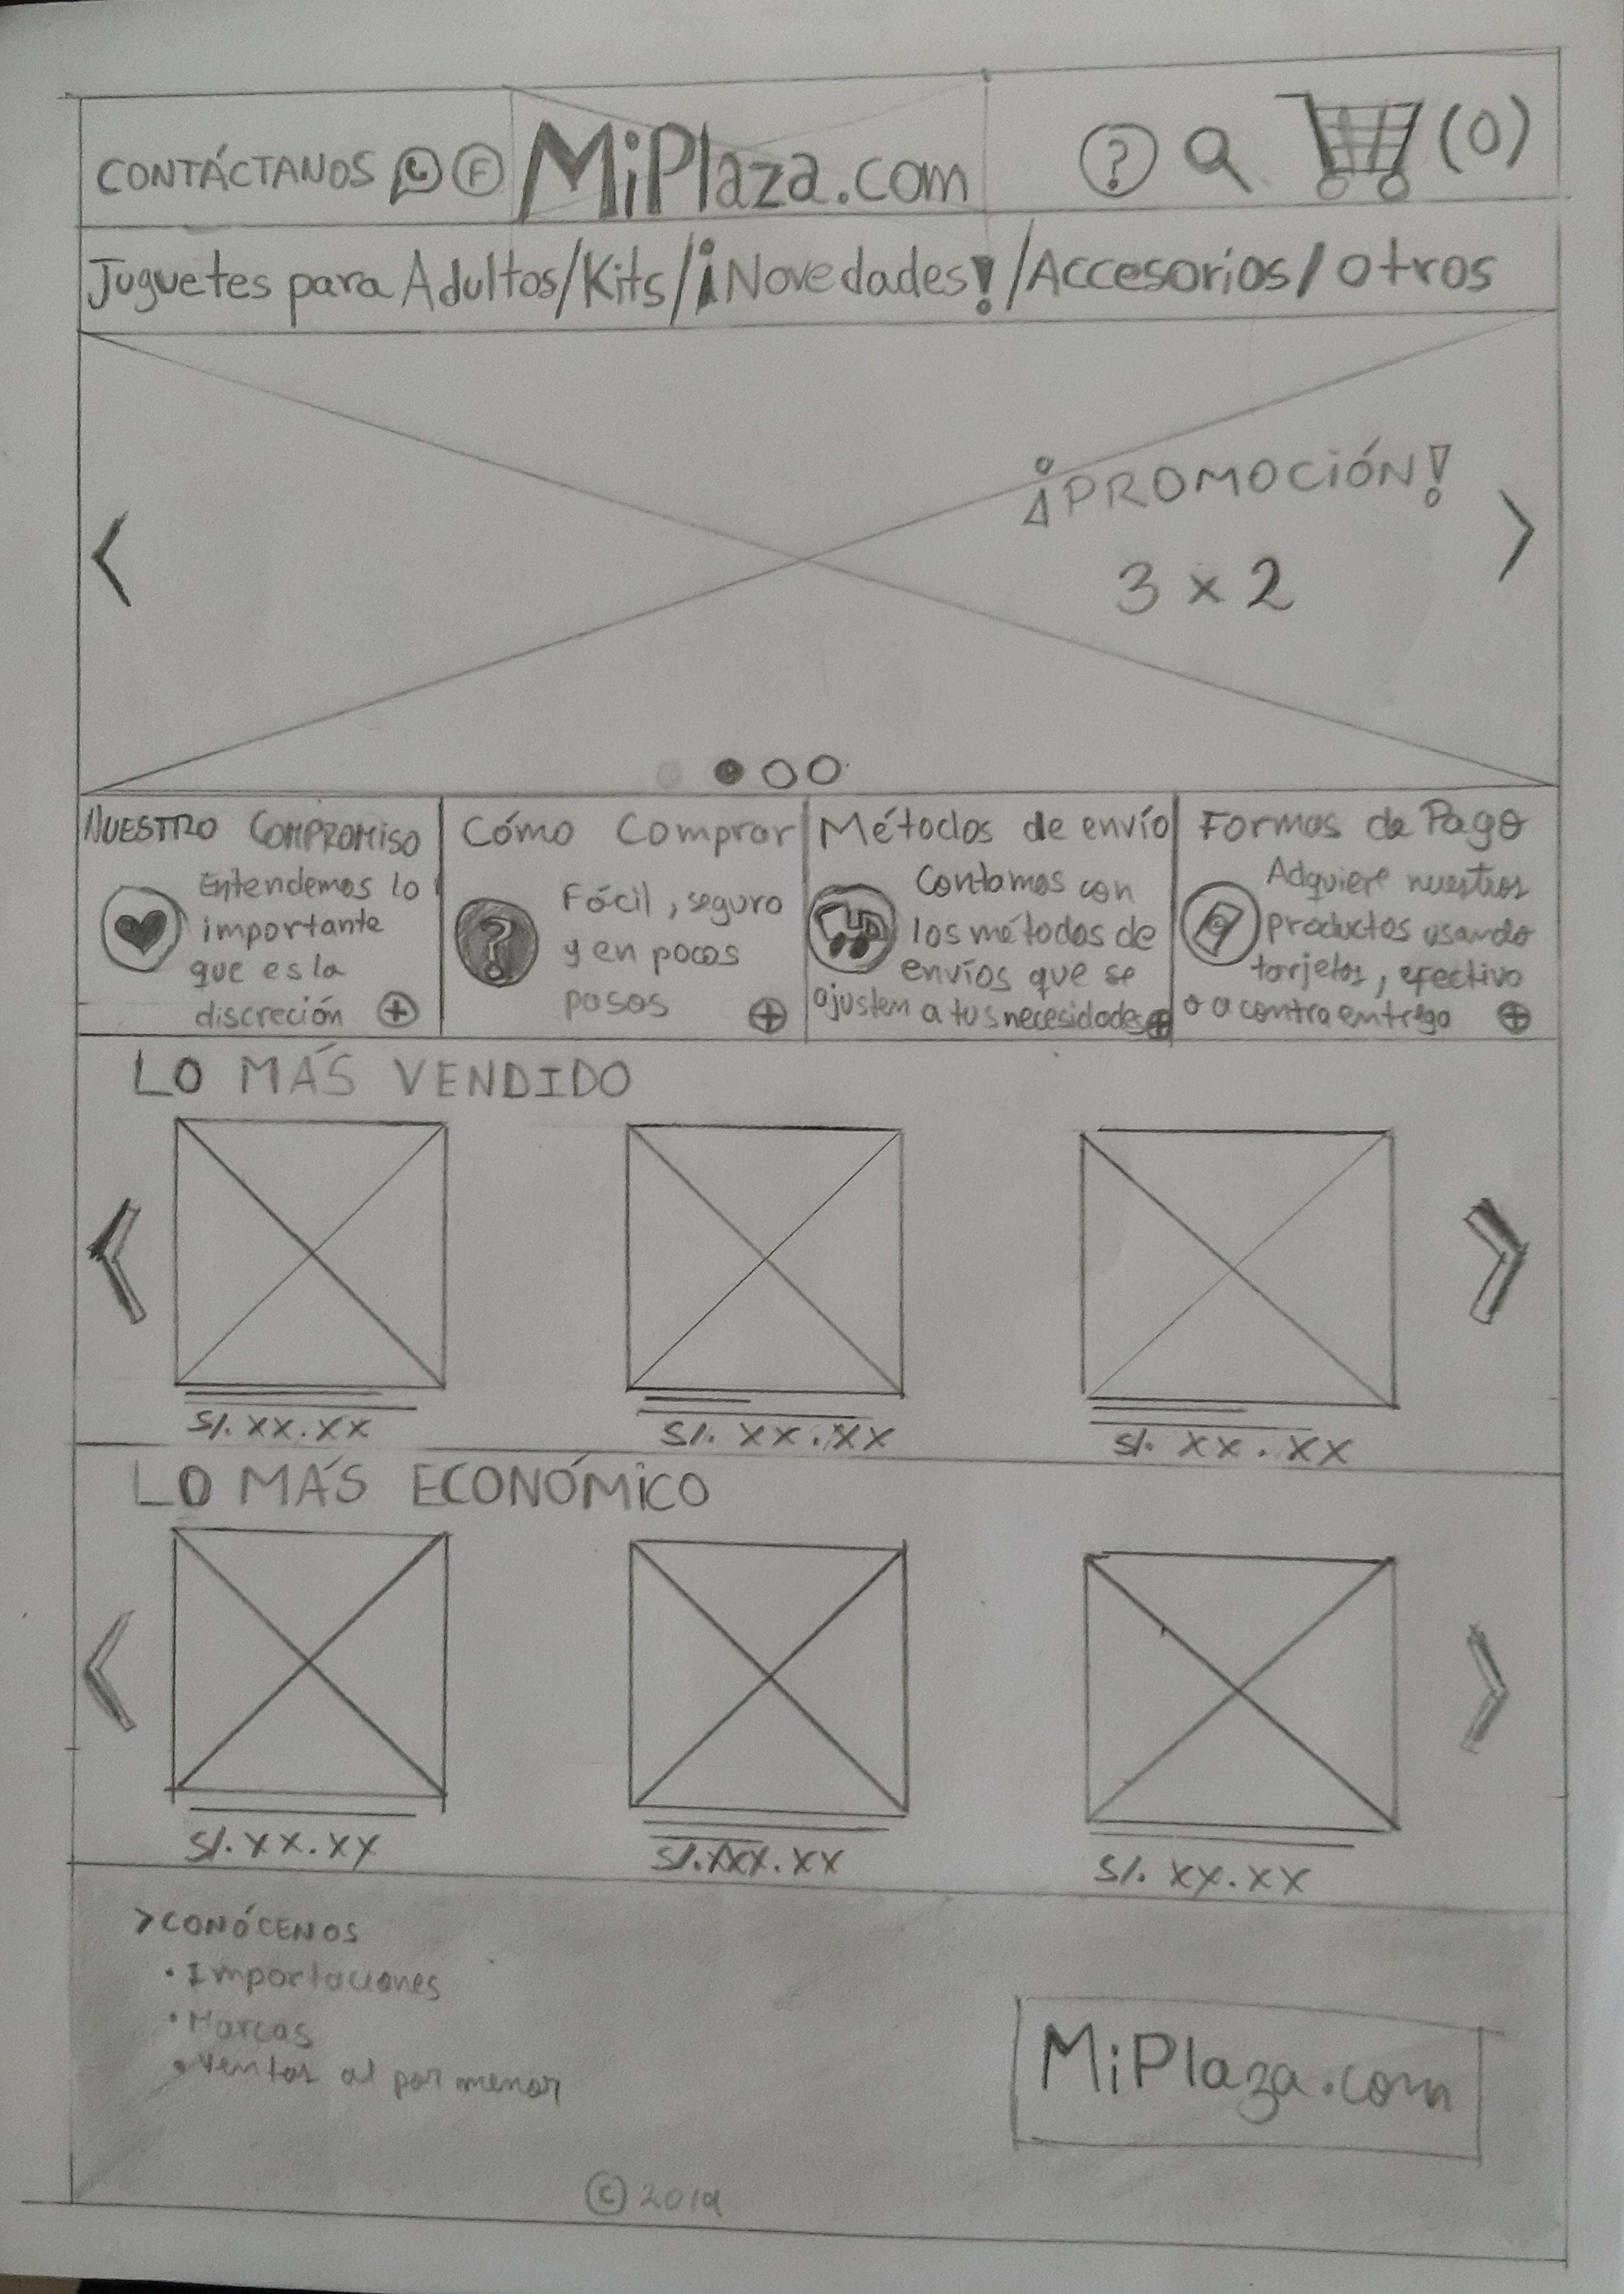 CONTÁCTANOS F MiPlaza.com ? (0)
Juguetes para Adultos/Kits/¡Novedades!/Accesorios/otros
¡PROMOCIÓN!
3 x 2
NUESTRO COMPROMISO
Entendemos lo
importante
que es la
discreción
Cómo Comprar
?
Fácil, seguro
y en pocos
pasos
Métodos de envío
Contamos con
los métodos de
envíos que se
ajusten a tus necesidades
Formas de Pago
Adquiere nuestros
productos usando
tarjetas, efectivo
o a contra entrega
LO MÁS VENDIDO
S/. XX.XX
S/. XX.XX
S/. XX.XX
LO MÁS ECONÓMICO
S/. XX.XX
S/. XXX.XX
S/. XX.XX
>CONÓCENOS
• Importaciones
• Marcas
• Ventas al por menor
MiPlaza.com
© 2019